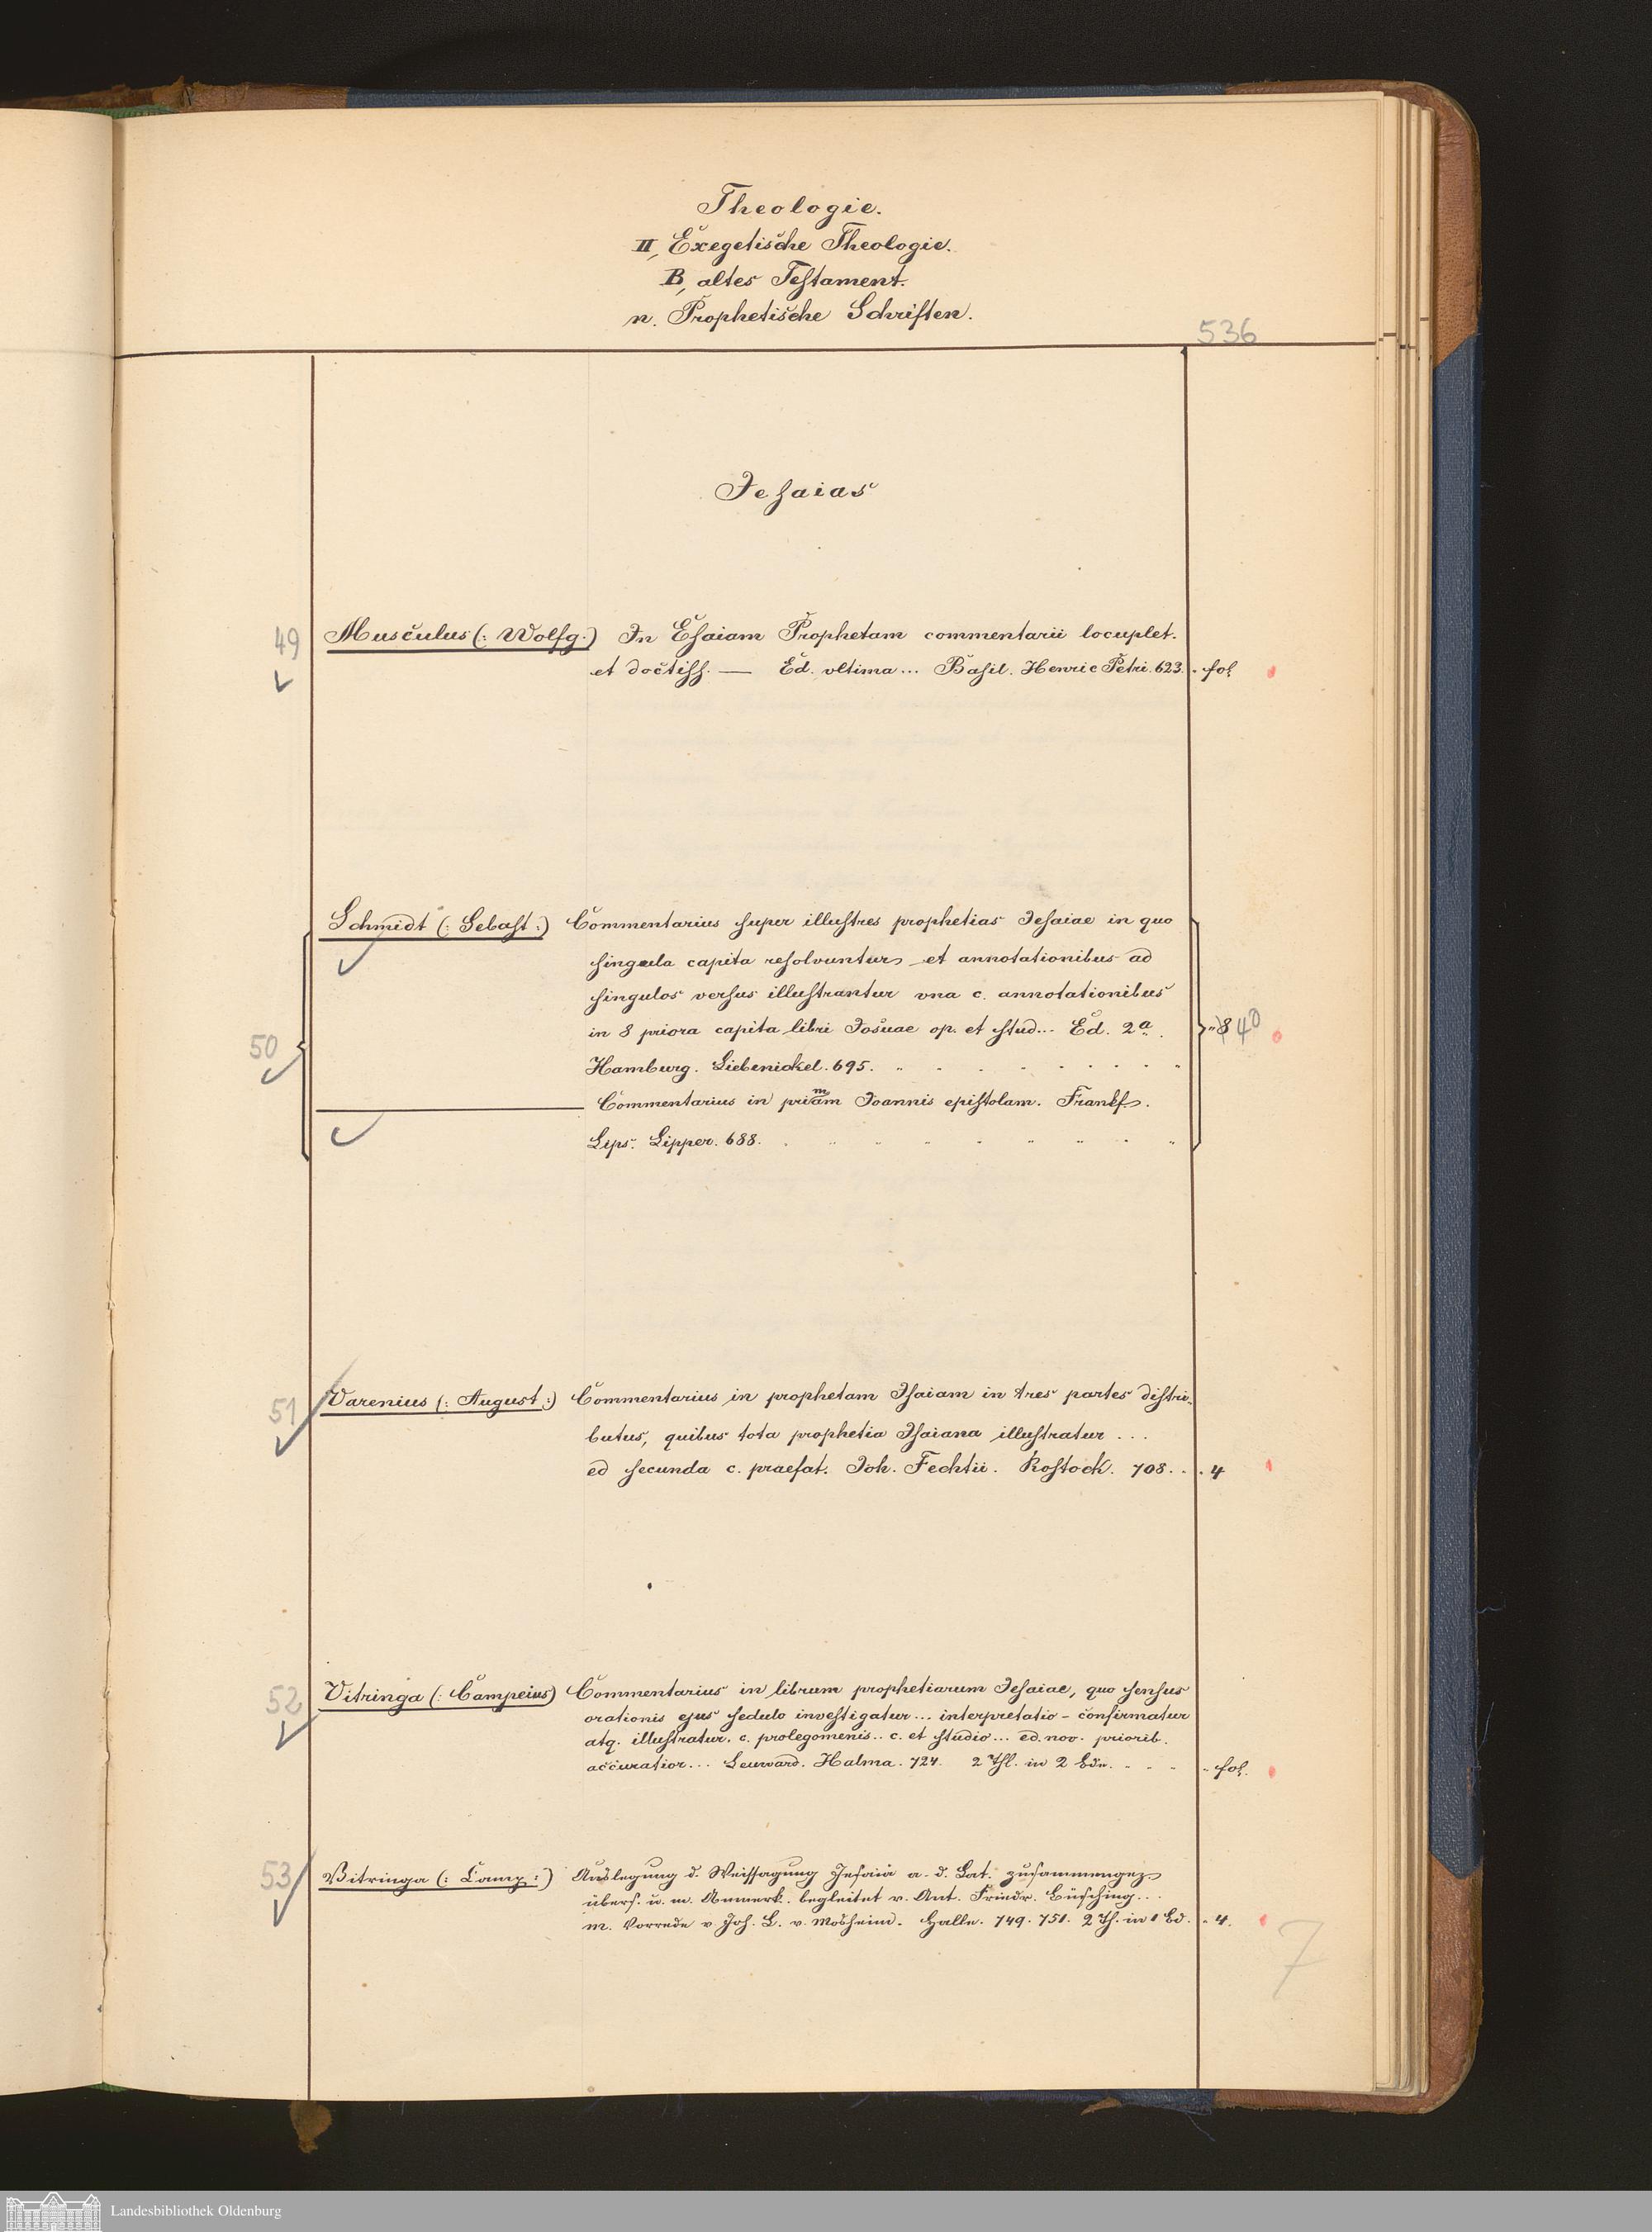 Theologie.
II, Exegetische Theologie.
B, altes Testament.
n. Prophetische Schriften.
536
Jesaias
49 Musculus (: Wolfg.) In Esaiam Prophetam commentarii locuplet.
et doctiss. — Ed. vltima... Basil. Henric Petri. 623. fol
Schmidt (: Sebast :) Commentarius super illustres prophetias Jesaiae in quo
singula capita resolvuntur et annotationibus ad
singulos versus illustrantur vna c. annotationibus
in 8 priora capita libri Josuae op. et stud... Ed. 2a. 40
50 Hamburg. Liebenickel. 695.
Commentarius in primam Joannis epistolam. Frankf.
Lips. Lipper. 688.
51 Varenius (: August :) Commentarius in prophetam Isaiam in tres partes distri-
butus, quibus tota prophetia Isaiana illustratur ...
ed secunda c. praefat. Joh. Fechtii. Rostock. 708. . . 4
52 Vitringa (: Campeius) Commentarius in librum prophetiarum Jesaiae, quo sensus
orationis ejus sedulo investigatur... interpretatio - confirmatur
atq. illustratur. c. prolegomenis.. c. et studio... ed. nov. priorib.
accuratior... Leuward. Halma. 724. 2 Thl. in 2 Bdn. fol.
53 Vitringa (: Camp :) Auslegung d. Weissagung Jesaiä a. d. Lat. zusammengez.
übers. u. m. Anmerk. begleitet v. Ant. Friedr. Büsching...
m. Vorrede v. Joh. L. v. Mosheim. Halle. 749. 751. 2 Th. in 1 Bd. 4.
7
Landesbibliothek Oldenburg